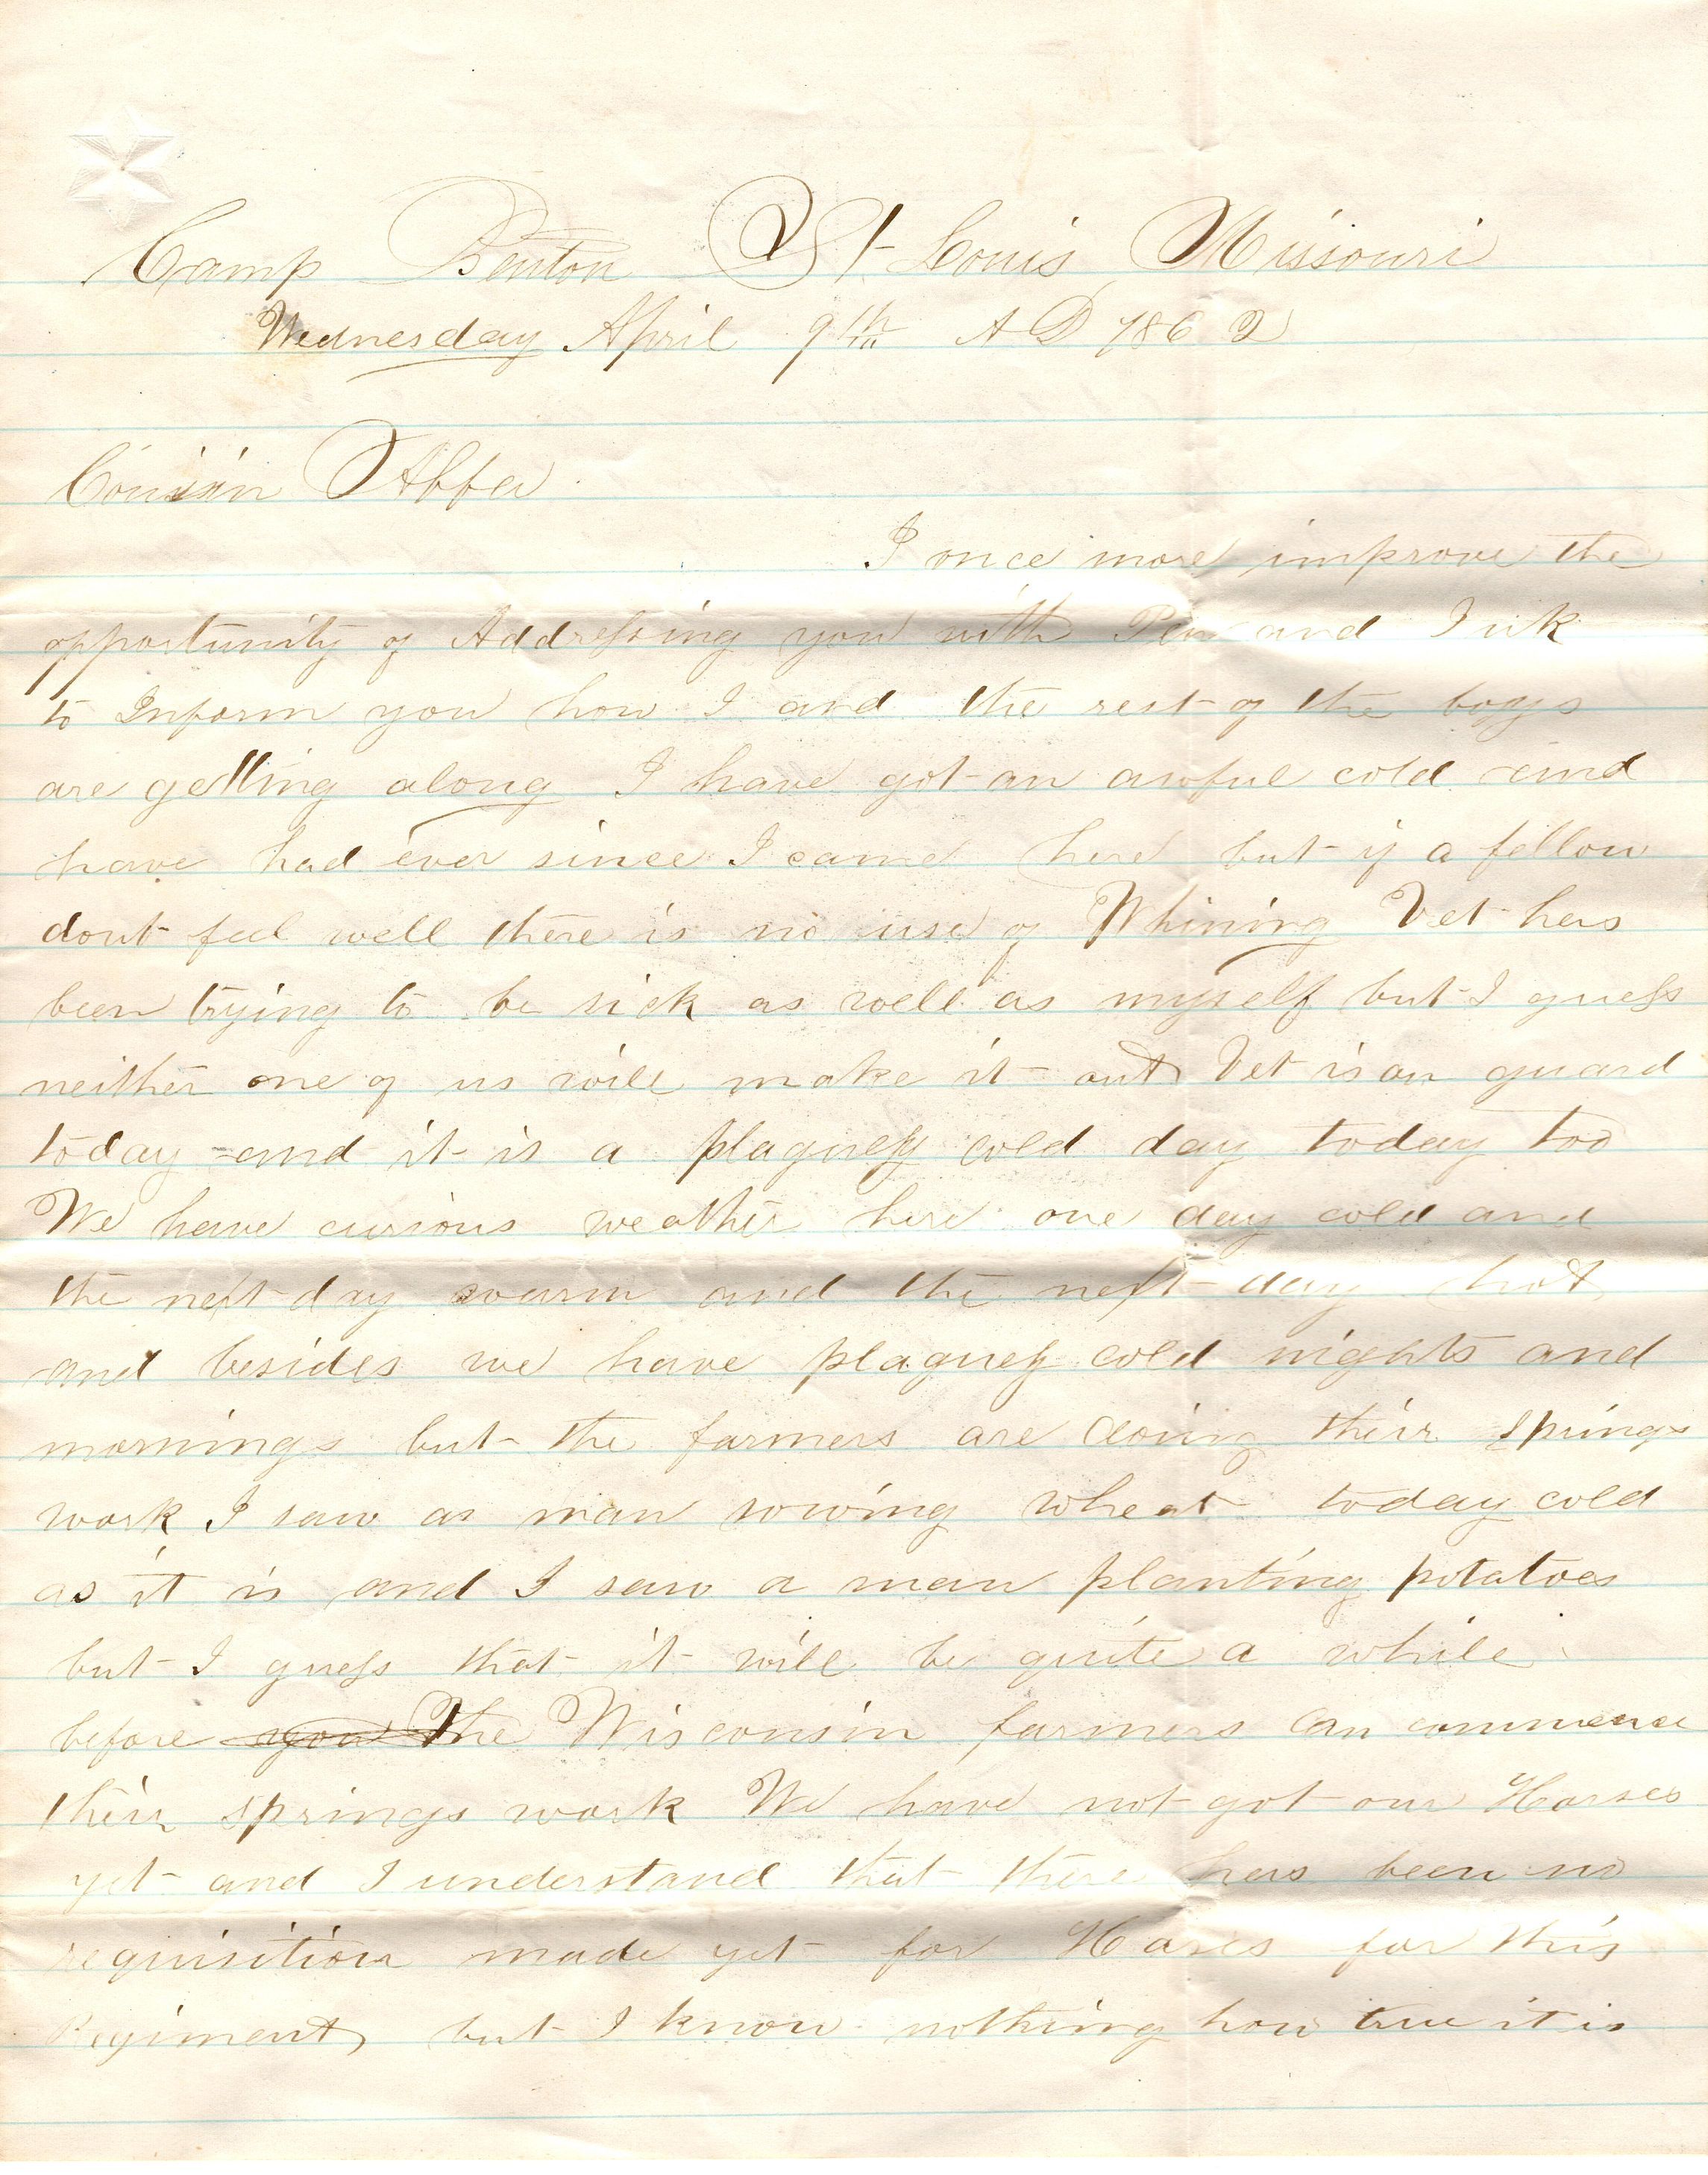 Camp Benton St Louis Missouri
Wednesday April 9th AD 1862
Cousin Abba
I once more improve the
opportunity of Addressing you with Pen and Ink
to Inform you how I and the rest of the boys
are getting along I have got an awful cold and
have had ever since I came here but if a fellow
dont feel well there is no use of Whining Vet has
been trying to be sick as well as myself but I guess
neither one of us will make it out Vet is on guard
today and it is a plaguey cold day today too
We have curious weather here one day cold and
the next day warm and the next day hot
and besides we have plaguey cold nights and
mornings but the farmers are doing their springs
work I saw a man sowing wheat today cold
as it is and I saw a man planting potatoes
but I guess that it will be quite a while
before you The Wisconsin farmers can commence
their springs work We have not got our Horses
yet and I understand that there has been no
requisition made yet for Horses for this
Regiment, but I know nothing how true it is